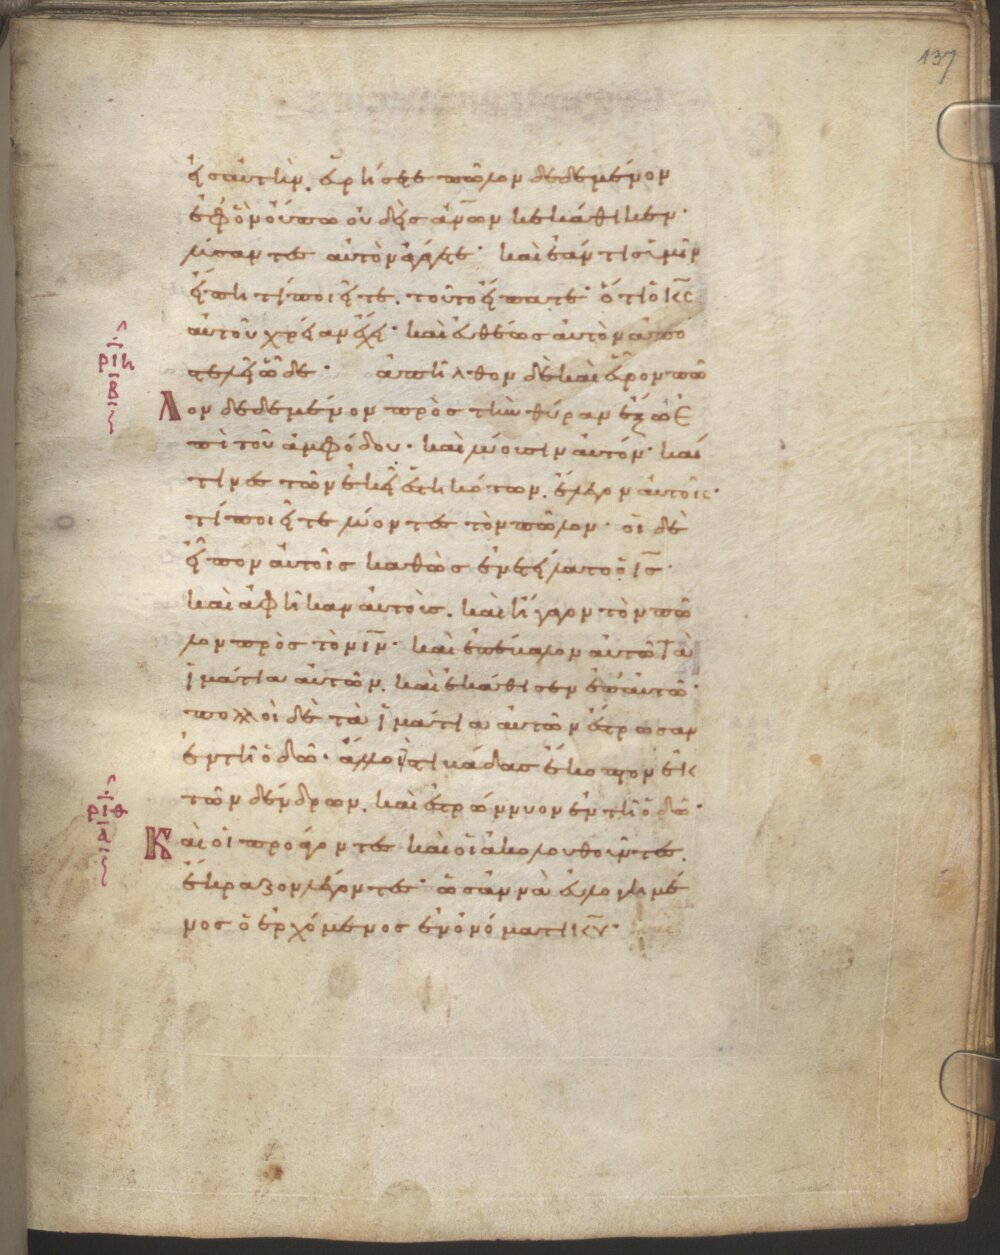 137
εἰς αὐτὴν, εὑρήσετε πῶλον δεδεμένον
ἐφ ὃν οὔπω οὐδεὶς ἀνων κεκάθικεν·
λύσαντες αὐτὸν ἀγάγετε· καὶ ἐάν τις ὑμῖν
εἴπη τί ποιεῖτε. τοῦτο εἴπατε· ὅτι ὁ κς
αὐτοῦ χρείαν ἔχει· καὶ εὐθέως αὐτὸν ἀπο
στελεῖ ὧδε· ἀπῆλθον δὲ καὶ εὗρον πῶ
ριη
β
λον δεδεμένον πρὸς τὴν θύραν ἔξω ἐ
πὶ τοῦ ἀμφόδου· καὶ λύουσιν αὐτόν· καί
τινες τῶν ἐκεῖ ἑστηκότων, ἔλεγον αὐτοῖς·
τί ποιεῖτε λύοντες τὸν πῶλον· οἱ δὲ
εἶπον αὐτοῖς καθὼς ἐνετείλατο ὁ ις·
καὶ ἀφῆκαν αὐτοὺς. καὶ ἤγαγον τὸν πῶ
λον πρὸς τὸν ιν· καὶ ἐπέβαλον αὐτῶ τὰ
ἱμάτια αὐτῶν, καὶ ἐκάθισεν ἐπ αὐτῶ·
πολλοὶ δὲ τὰ ἱμάτια αὐτῶν ἔστρωσαν
ἐν τῆ ὁδῶ· ἄλλοι στιβάδας ἔκοπτον ἐκ
τῶν δένδρων, καὶ ἐστρώννυον ἐν τῆ ὁδῶ·
ριθ
α
Καὶ οἱ προάγοντες καὶ οἱ ἀκολουθοῦντες,
ἔκραζον λέγοντες· ὡσαννὰ εὐλογημέ
νος ὁ ἐρχόμενος ἐν ὀνόματι κυ·